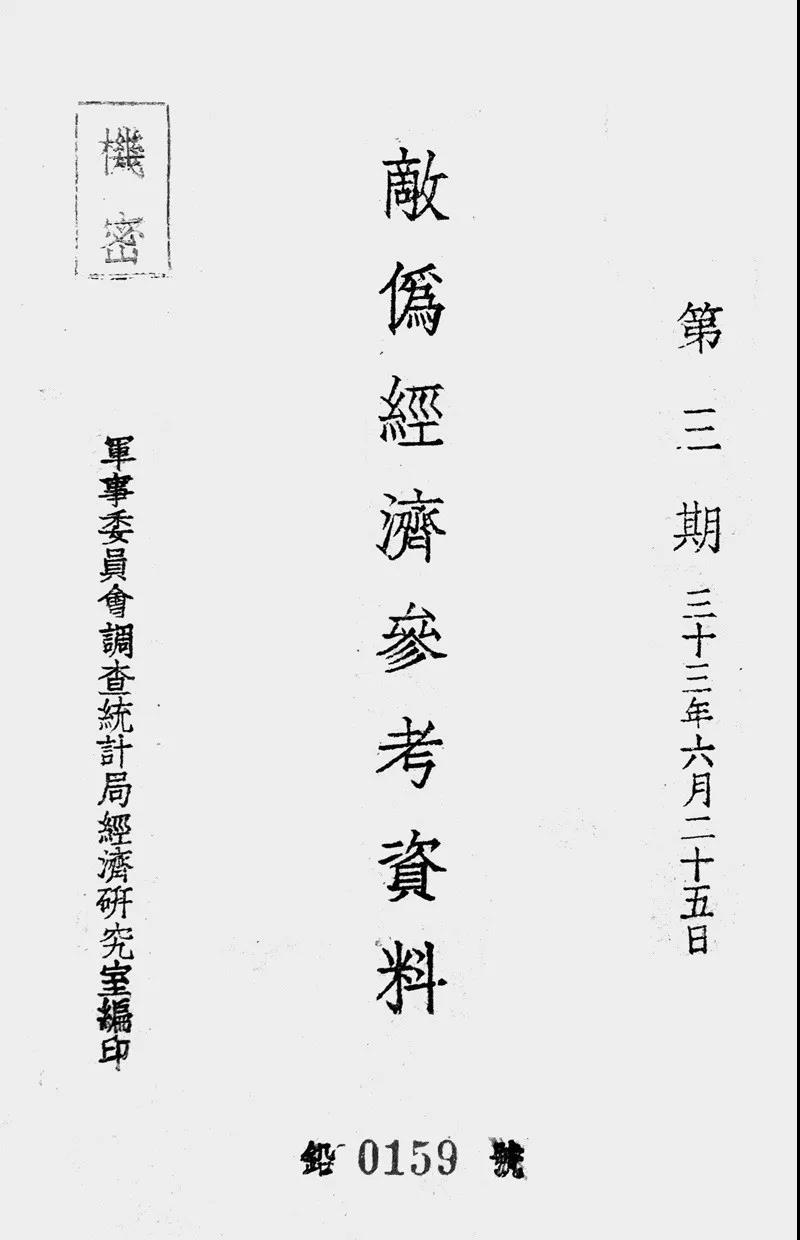 第三期 三十三年六月二十五日
敵僞經濟參考資料
機密
軍事委員會調查統計局經濟研究室編印
鉛 0159 號